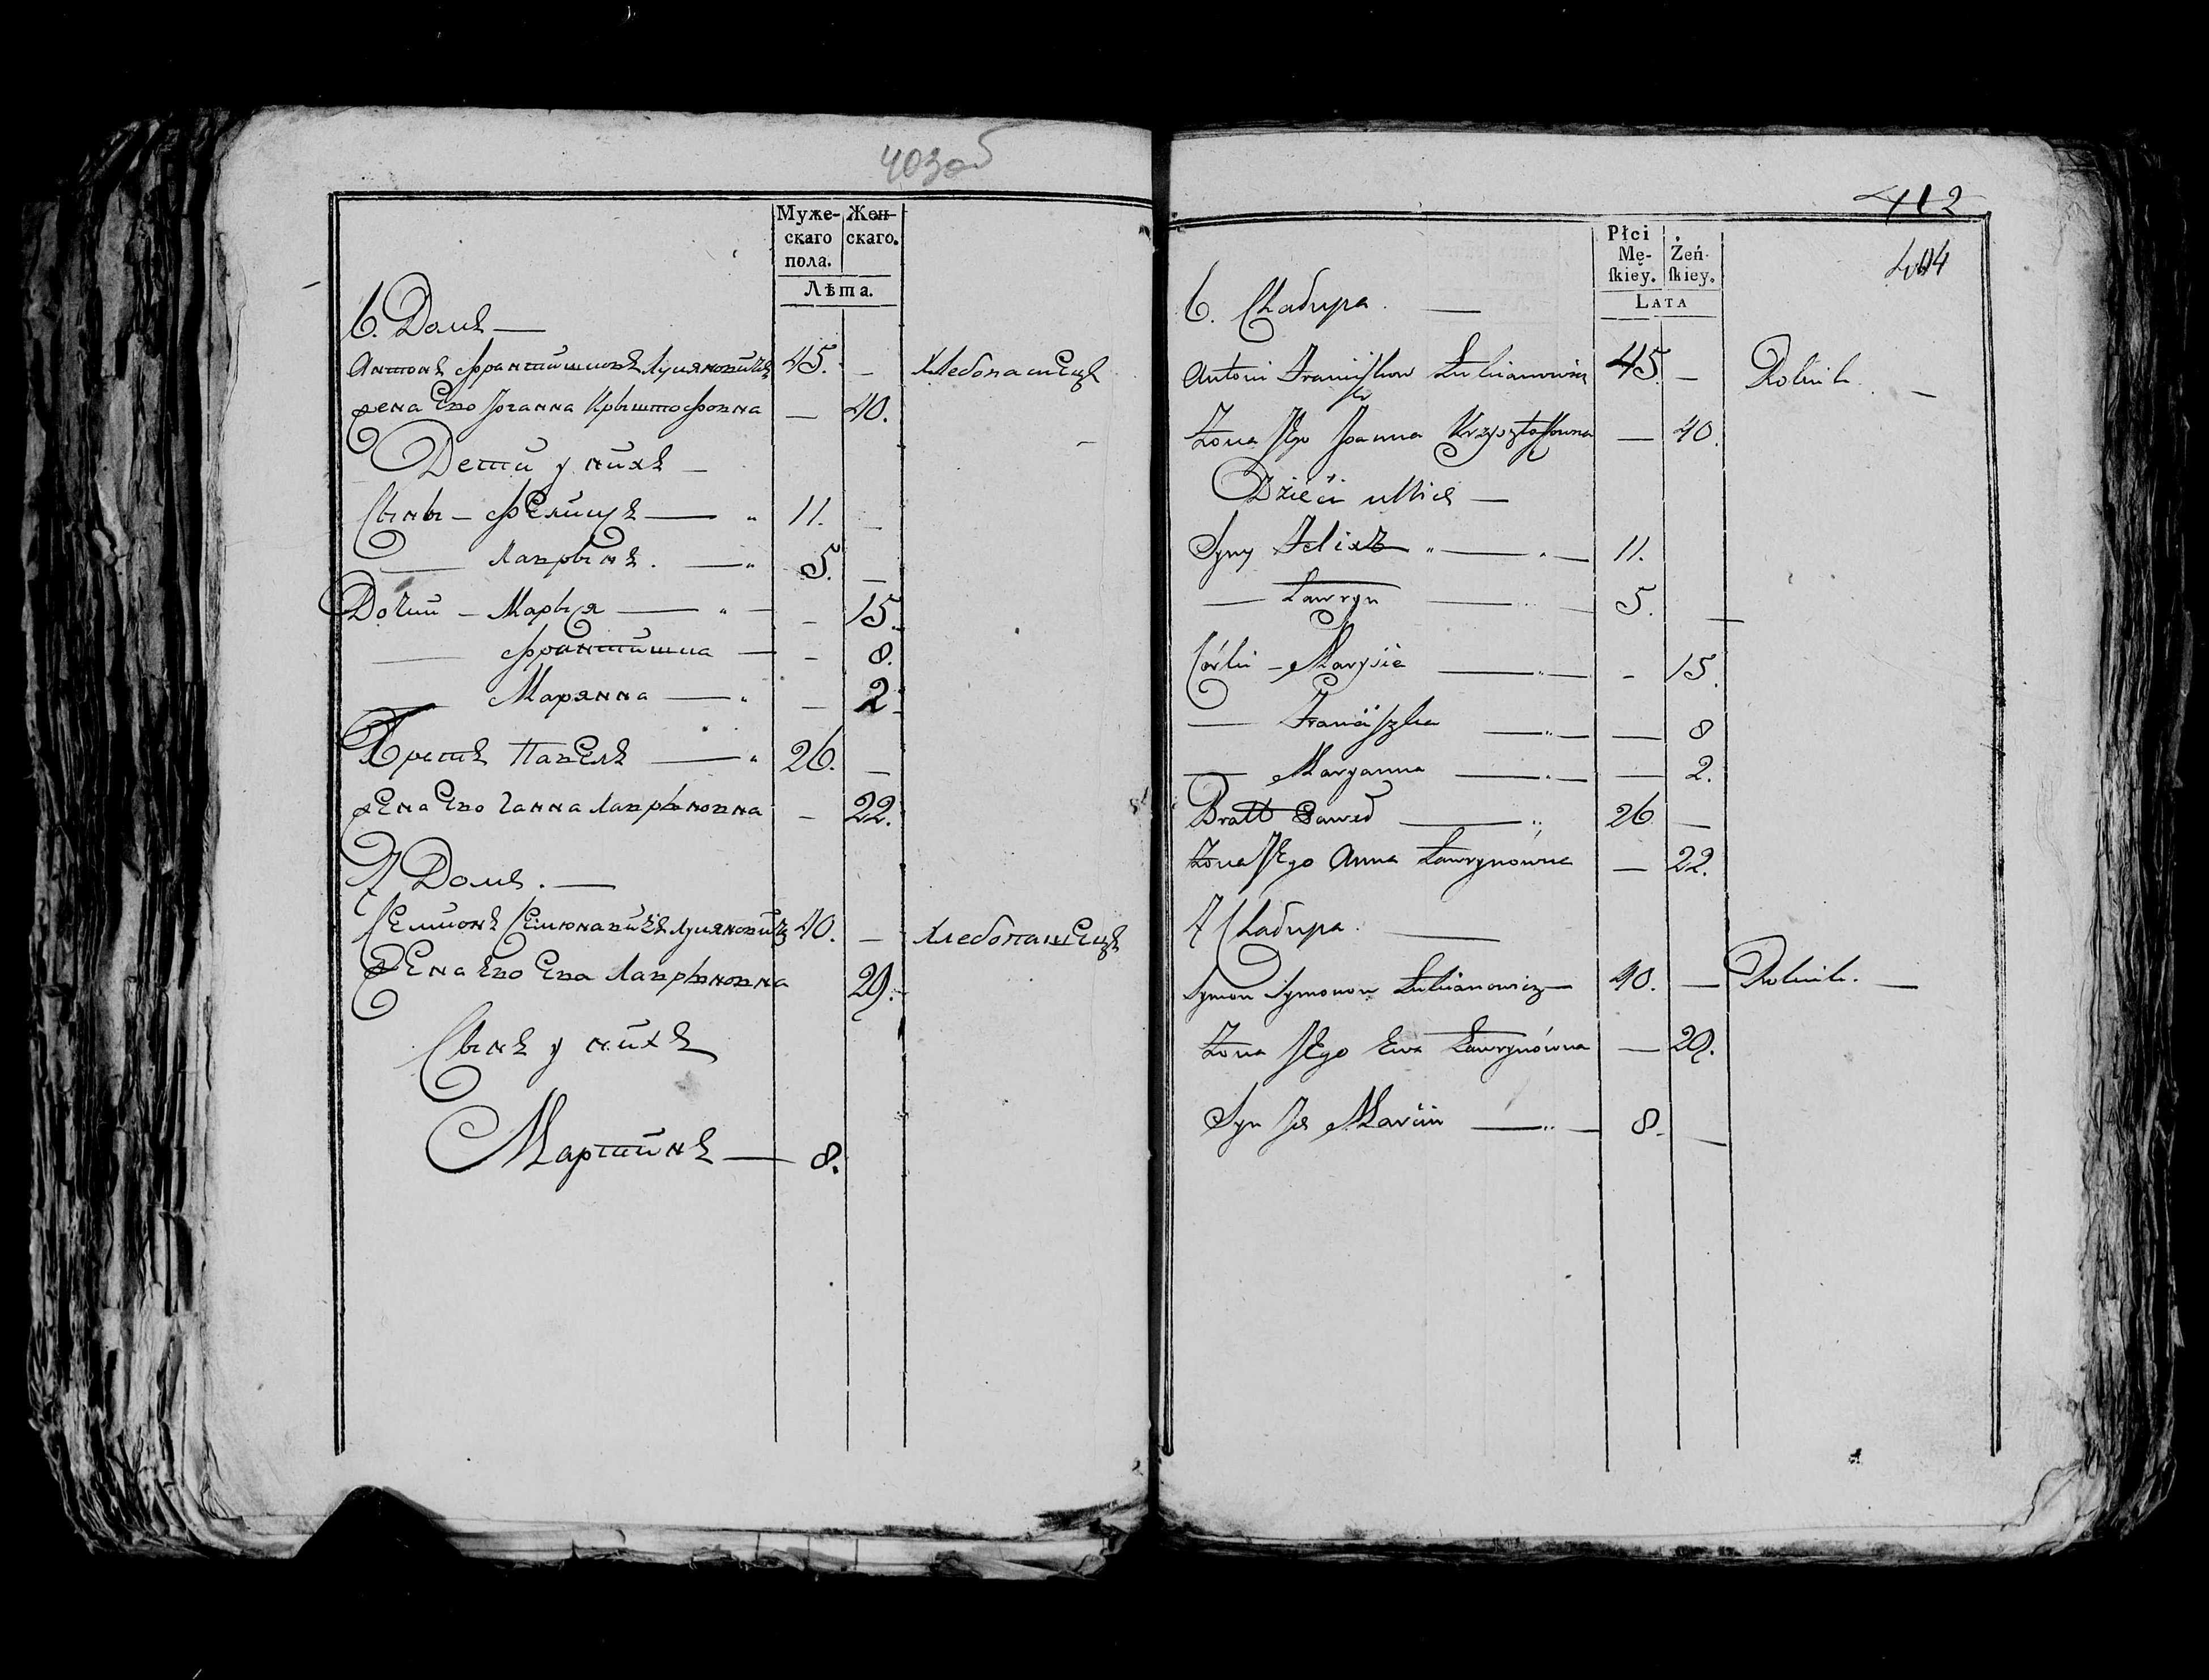 403об
Муже- Жен-
скаго скаго.
пола.
Лѣта.
6. Домъ —
Антонъ Франтишковъ Лукяновичъ 45. — Хлебопашецъ
жена Ево Іоганна Крыштофовна — 40.
Дети у нихъ —
Сыны — Феликсъ — " 11. —
— Лаврынъ. — " 5. —
Дочки — Марыя — " — — 15.
— Франтишка — — 8.
— Марянна — " — 2.
Братъ Павелъ — " 26. —
жена Ево Ганна Лаврыновна — 22.
7 Домъ. —
Семионъ Семионавичъ Лукяновичъ 40. — Хлебопашецъ
Жена Ево Ева Лаврыновна 29.
Сынъ у нихъ
Мартинъ — 8.
412
404
Płci
Mę- Żeń-
ſkiey. ſkiey.
LATA
6. Chałupa. —
Antoni Franciszkow Łukianowicz 45. — Rolnik. —
Żona Jego Joanna Krzysztoffowna — 40.
Dzieci u Nich —
Syny Felix " — " — 11.
— Ławryn — 5. —
Córki — Marysia — " — - 15.
— Franciszka — " — — 8
— Maryanna — " — — 2.
Bratt Paweł — " 26 —
Żona Jego Anna Ławrynówna — 22.
7 Chałupa. —
Symon Symonow Łukianowicz — 40. — Rolnik. —
Żona Jego Ewa Ławrynówna — 29.
Syn Ich Marcin — " — 8. —